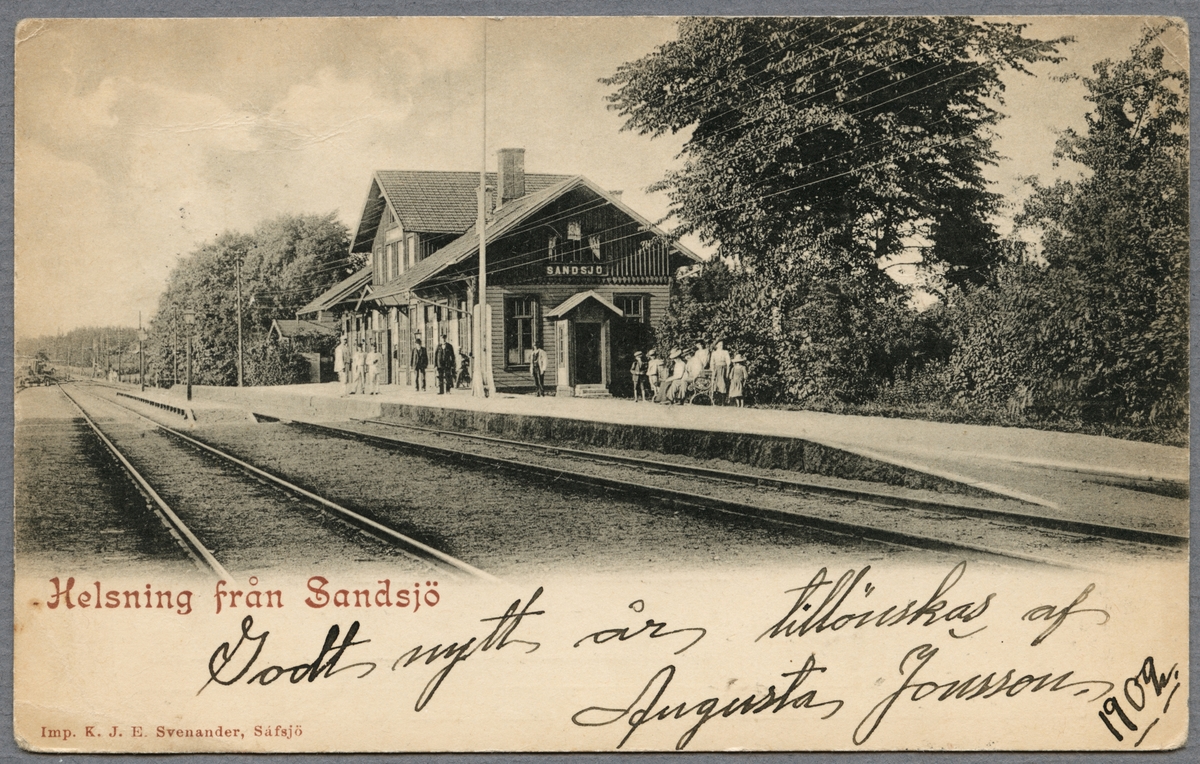 SANDSJÖ
Helsning från Sandsjö
Godt nytt år tillönskas af
Augusta Jonsson.
1902.
Imp. K. J. E. Svenander, Säfsjö